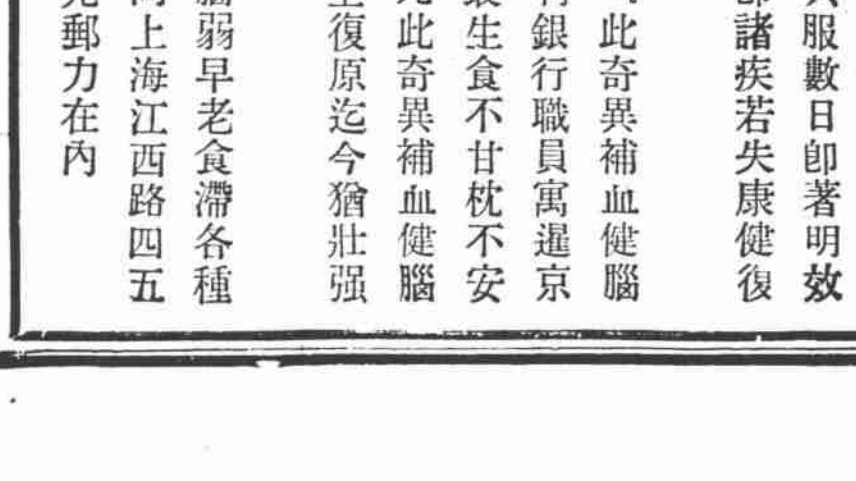 服數日卽著明效
諸疾若失康健復
此奇異補血健腦
銀行職員寓暹京
生食不甘枕不安
此奇異補血健腦
復原迄今猶壯强
弱早老食滯各種
上海江西路四五
郵力在內